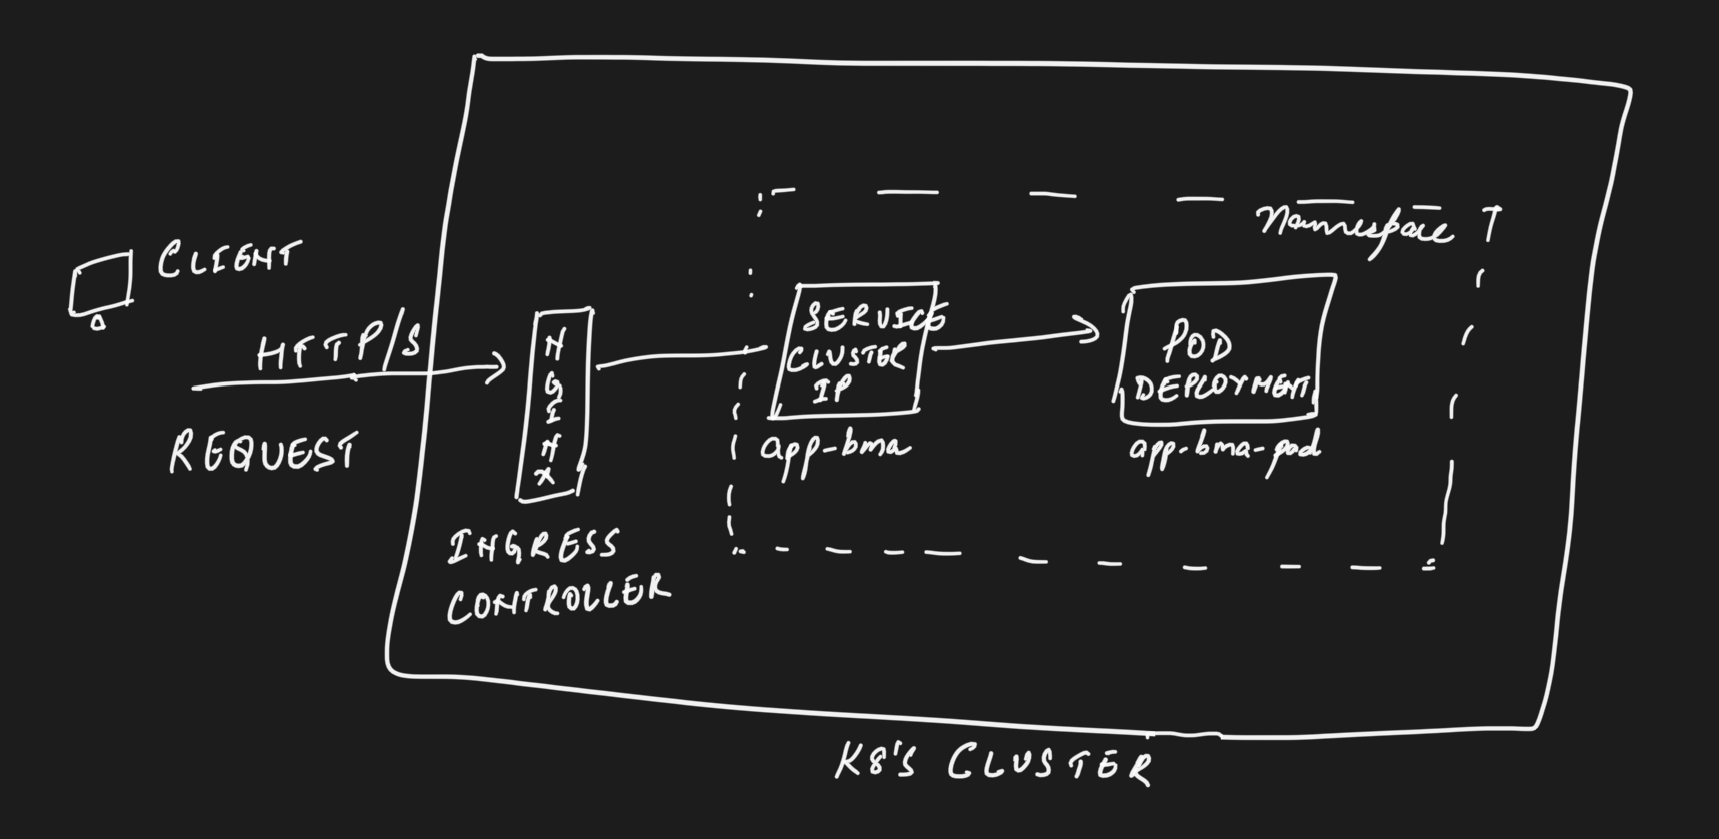 CLIENT
HTTP/S
REQUEST
NGINX
INGRESS
CONTROLLER
Namespace
SERVICE
CLUSTER
IP
app-bma
POD
DEPLOYMENT
app-bma-pod
K8'S CLUSTER